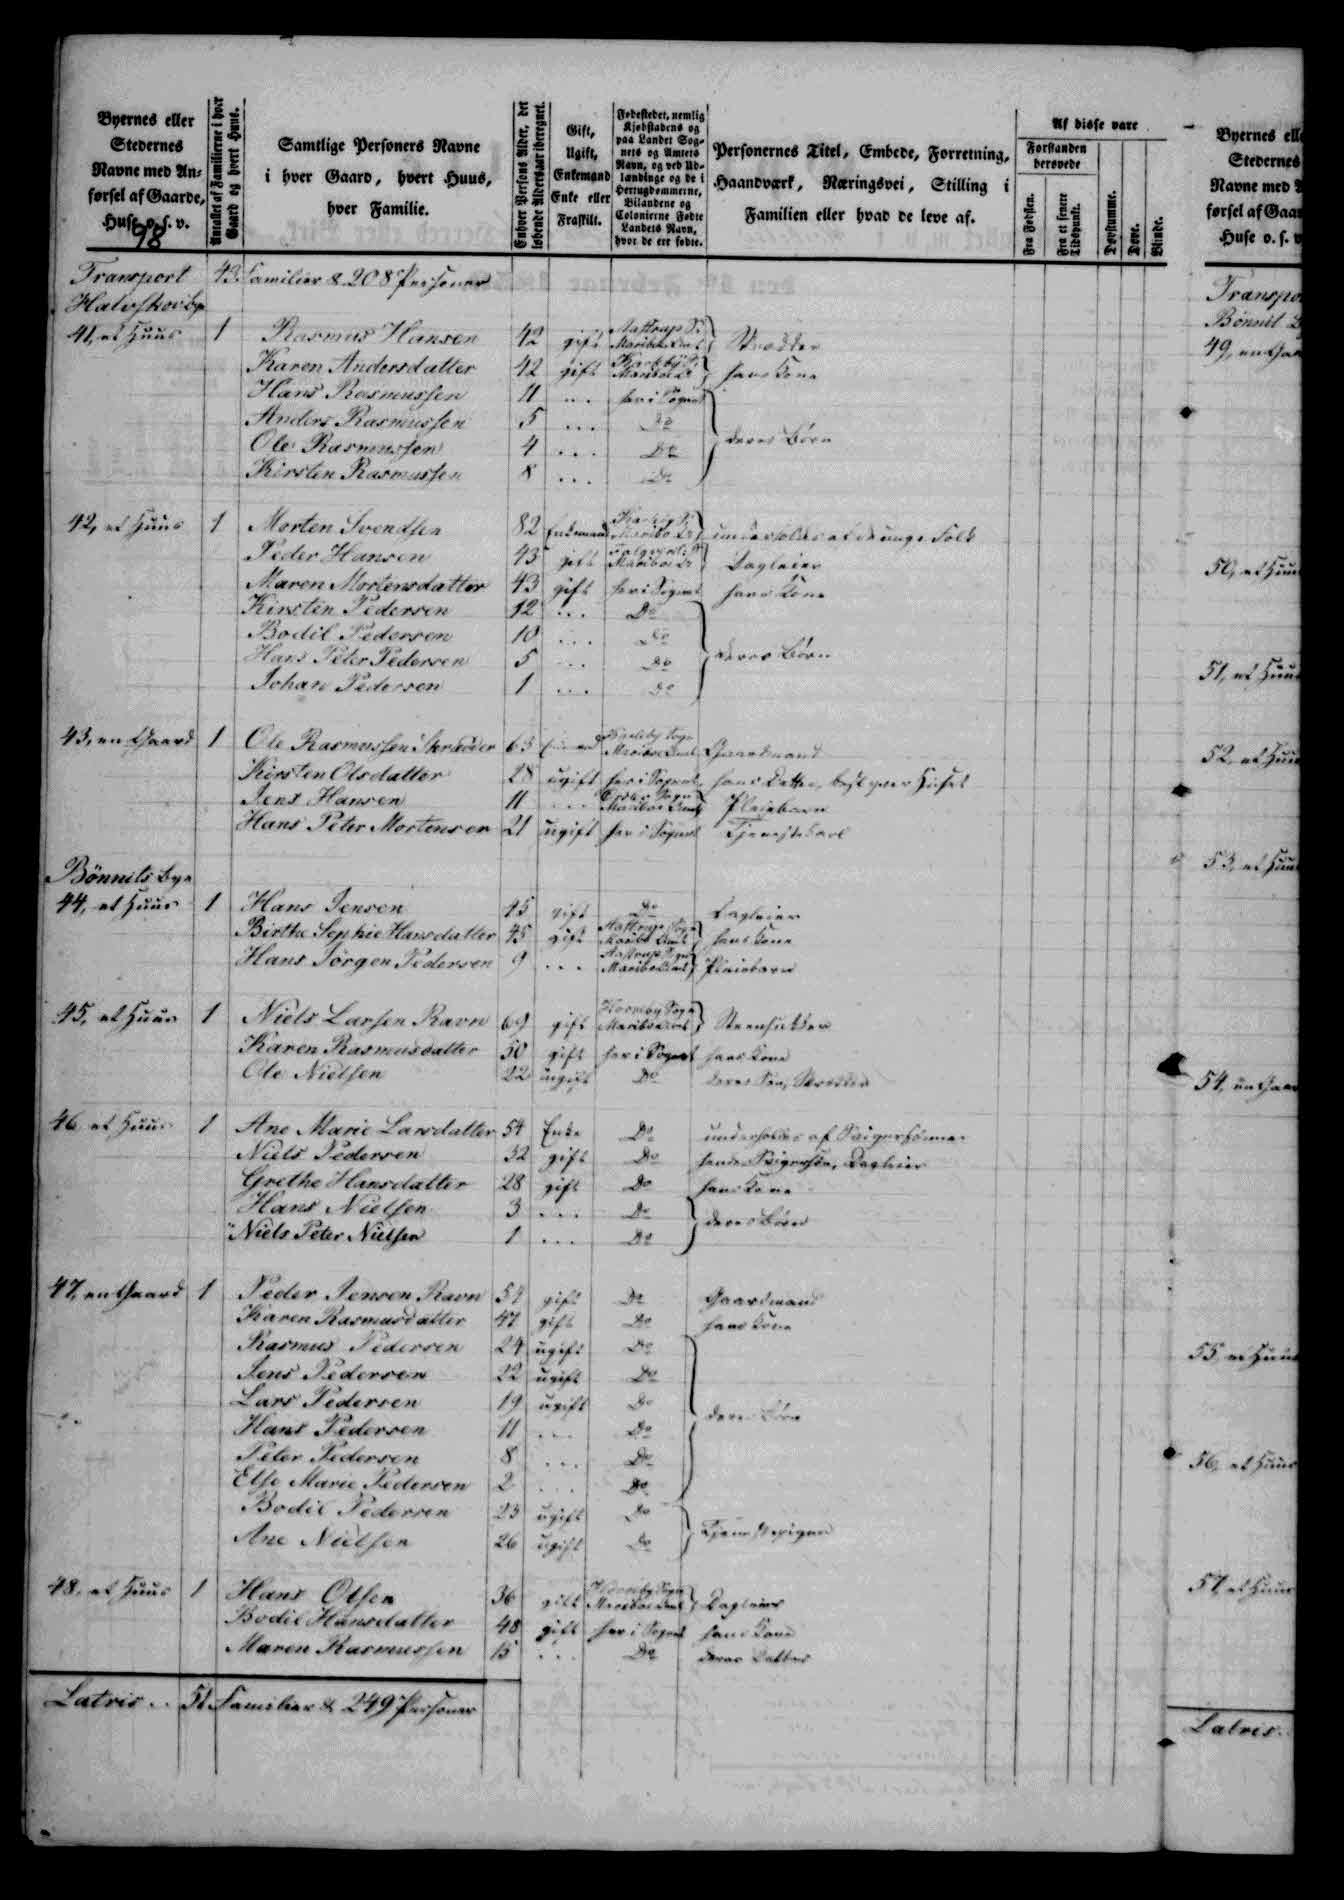 Byernes eller Stedernes Navne med Anførsel af Gaarde, Huse o. s. v.
Antallet af Familierne i hver Gaard og hvert Huus.
Samtlige Personers Navne i hver Gaard, hvert Huus, hver Familie.
Enhver Persons Alder, det løbende Aldersaar iberegnet.
Gift, Ugift, Enkemand Enke eller Fraskilt.
Fødestedet, nemlig Kjøbstadens og paa Landet Sognets og Amtets Navn, og ved Udlændinge og de i Hertugdømmerne, Bilandene og Colonierne Fødte Landets Navn, hvor de ere fødte.
Personernes Titel, Embede, Forretning, Haandværk, Næringsvei, Stilling i Familien eller hvad de leve af.
Af disse vare
Forstanden berøvede
Fra Fødslen.
Fra et senere Tidspunkt.
Døvstumme.
Døve.
Blinde.
98
Transport 43 Familier & 208 Personer
Halvskovbye
41, et Huus 1 Rasmus Hansen 42 gift Aastrup S. Maribo Amt Skrædder
Karen Andersdatter 42 gift Maribo A. hans Kone
Hans Rasmussen 11 ... her i Sognet
Anders Rasmussen 5 ... Do
Ole Rasmussen 4 ... Do deres Børn
Kirsten Rasmussen 8 ... Do
42, et Huus 1 Morten Svendsen 82 Enkemand Maribo A. underholdes af de unge Folk
Peder Hansen 43 gift Maribo A. Dagleier
Maren Mortensdatter 43 gift her i Sognet hans Kone
Kirsten Pedersen 12 ... Do
Bodil Pedersen 10 ... Do
Hans Peter Pedersen 5 ... Do deres Børn
Johan Pedersen 1 ... Do
43, en Gaard 1 Ole Rasmussen Skrædder 63 Karleby Sogn Maribo Amt Gaardmand
Kirsten Olsdatter 28 ugift her i Sognet hans Datter, bestyrer Huset
Jens Hansen 11 ... Maribo Amt Pleiebarn
Hans Peter Mortensen 21 ugift her i Sognet Tjenestekarl
Bönnits bye
44, et Huus 1 Hans Jensen 45 gift Do Dagleier
Birthe Sophie Hansdatter 45 gift Aastrup Sogn Maribo Amt hans Kone
Hans Jörgen Pedersen 9 ... Aastrup Sogn Maribo Amt Pleiebarn
45, et Huus 1 Niels Larsen Ravn 69 gift Sogn Maribo Amt Steenhukker
Karen Rasmusdatter 50 gift her i Sognet hans Kone
Ole Nielsen 22 ugift Do deres Søn, Skrædder
46 et Huus 1 Ane Marie Larsdatter 54 Enke Do underholdes af
Niels Pedersen 32 gift Do Dagleier
Grethe Hansdatter 28 gift Do hans Kone
Hans Nielsen 3 ... Do
Niels Peter Nielsen 1 ... Do deres Børn
47, en Gaard 1 Peder Jensen Ravn 54 gift Do Gaardmand
Karen Rasmusdatter 47 gift Do hans Kone
Rasmus Pedersen 24 ugift Do
Jens Pedersen 22 ugift Do
Lars Pedersen 19 ugift Do
Hans Pedersen 11 ... Do deres Børn
Peter Pedersen 8 ... Do
Else Marie Pedersen 2 ... Do
Bodil Pedersen 23 ugift Do
Ane Nielsen 26 ugift Do Tjenestepiger
48, et Huus 1 Hans Olsen 36 gift Sogn Maribo Amt Dagleier
Bodil Hansdatter 48 gift her i Sognet hans Kone
Maren Rasmussen 15 ... Do deres Datter
Latris .. 51 Familier & 249 Personer
Byernes elle
Stedernes
Navne med
førsel af Gaar
Huse o. s. v
Transpo
Bönnit
49, en Gaa
50, et Huu
51, et Huu
52, et Huu
53, et Huu
54, en Gaar
55 et Huu
56, et Huus
57 et Huu
Latris.